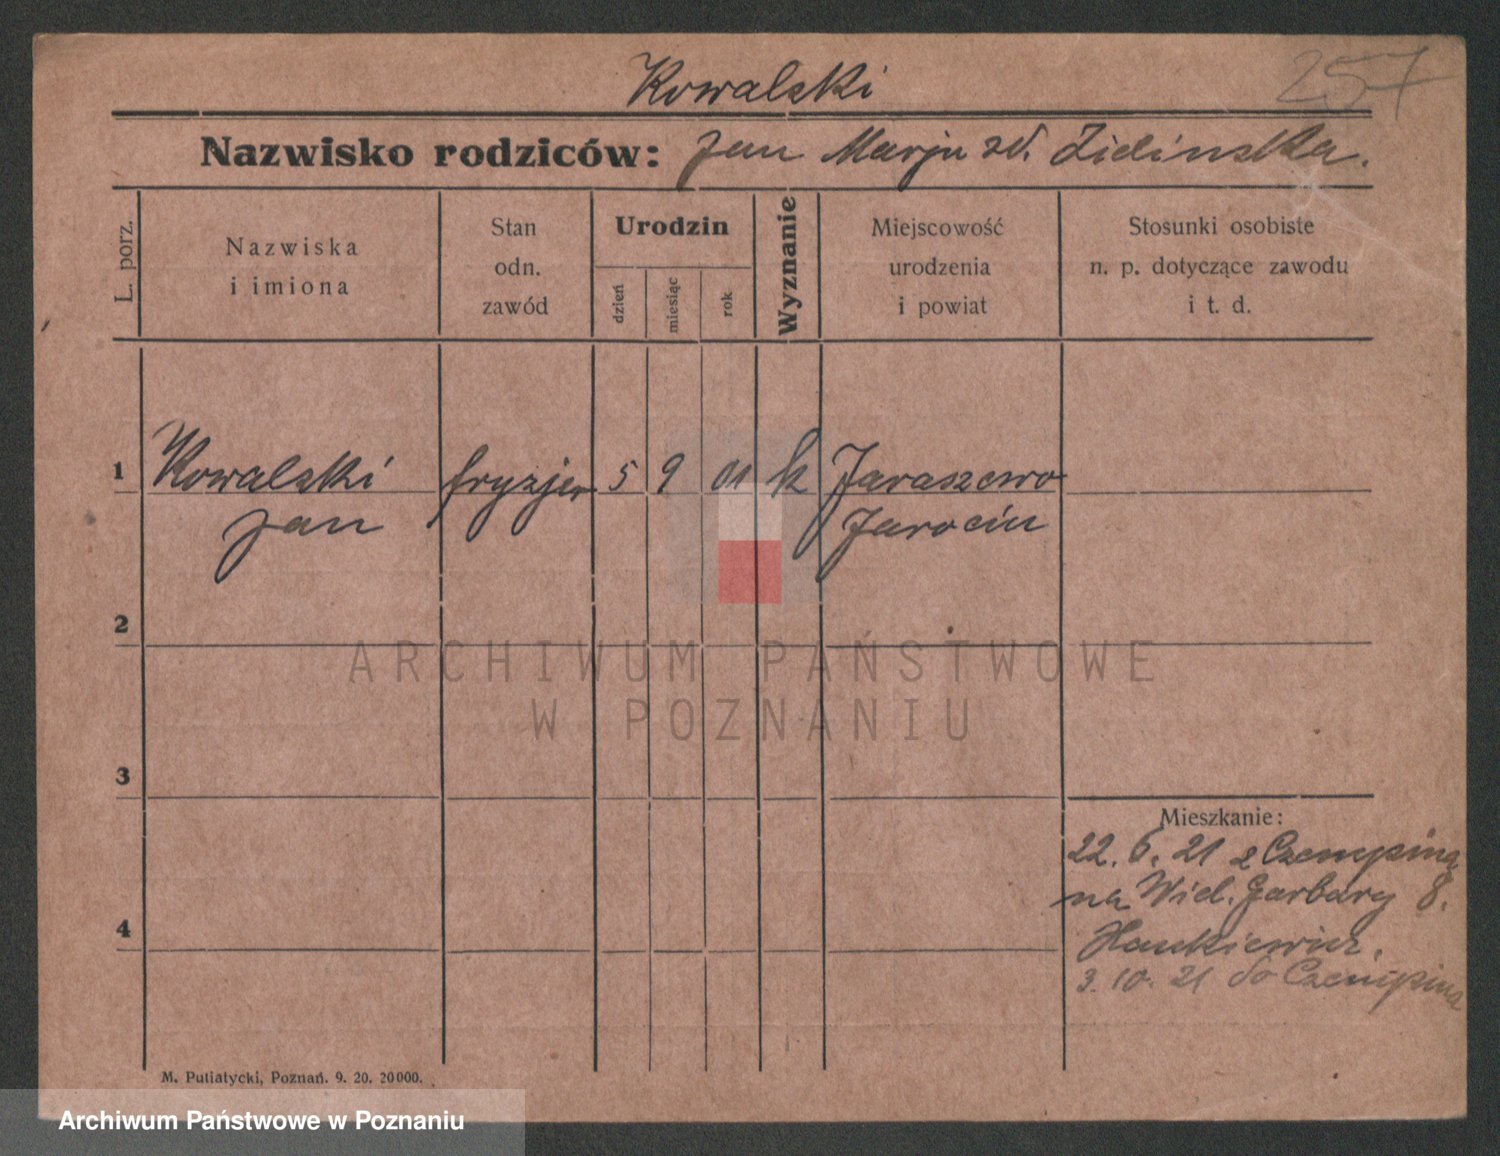 257
Kowalski
Nazwisko rodziców: Jan Marja zd. Zielinska.
L. porz.
Nazwiska
i imiona
Stan
odn.
zawód
Urodzin
dzień
miesiąc
rok
Wyznanie
Miejscowość
urodzenia
i powiat
Stosunki osobiste
n. p. dotyczące zawodu
i t. d.
1
Kowalski fryzjer 5 9 01 k Jaraszewo
Jan Jarocin
2
ARCHIWUM PAŃSTWOWE
W POZNANIU
3
Mieszkanie:
22. 6. 21 z Czempina
na Wiel. Garbary 8.
4
3. 10. 21 do Czempina
M. Putiatycki, Poznań. 9. 20. 20000.
Archiwum Państwowe w Poznaniu